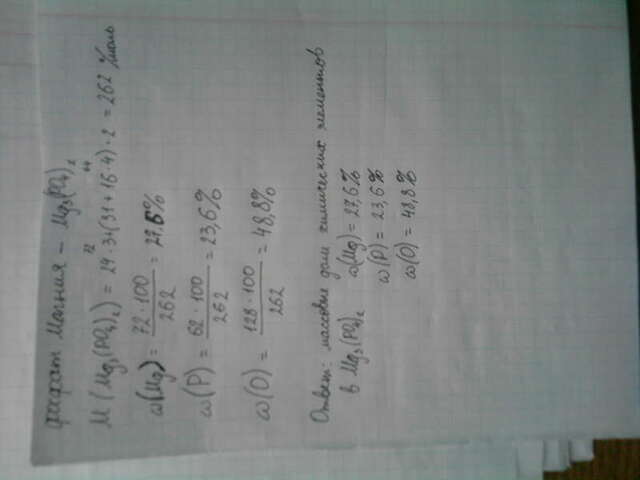 фосфат Магния – Mg₃(PO₄)₂
72 64
M(Mg₃(PO₄)₂) = 24·3+(31+16·4)·2 = 262 г/моль
ω(Mg) = 72·100 / 262 = 27,6%
ω(P) = 62·100 / 262 = 23,6%
ω(O) = 128·100 / 262 = 48,8%
Ответ: массовые доли химических элементов
в Mg₃(PO₄)₂ ω(Mg) = 27,6%
ω(P) = 23,6%
ω(O) = 48,8%